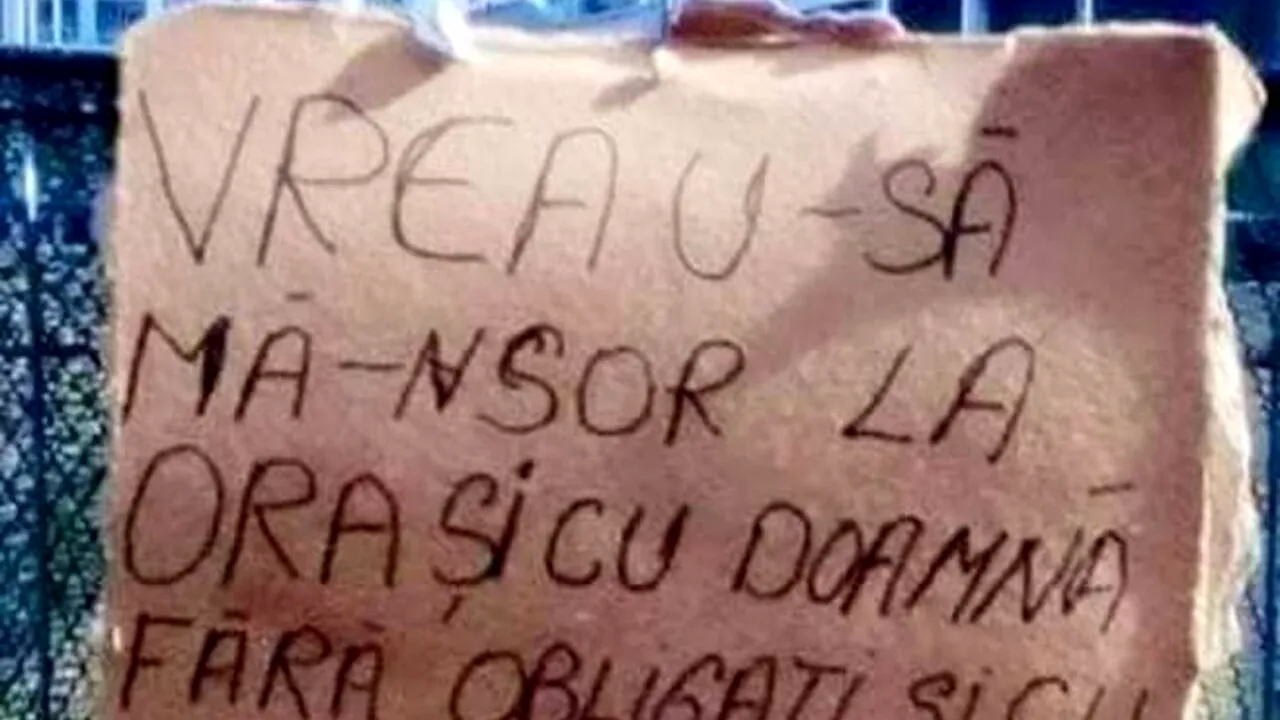 VREAU-SĂ
MĂ-NSOR LA
ORAȘiCU DOAMNĂ
FĂRĂ OBLIGAȚI SiCU